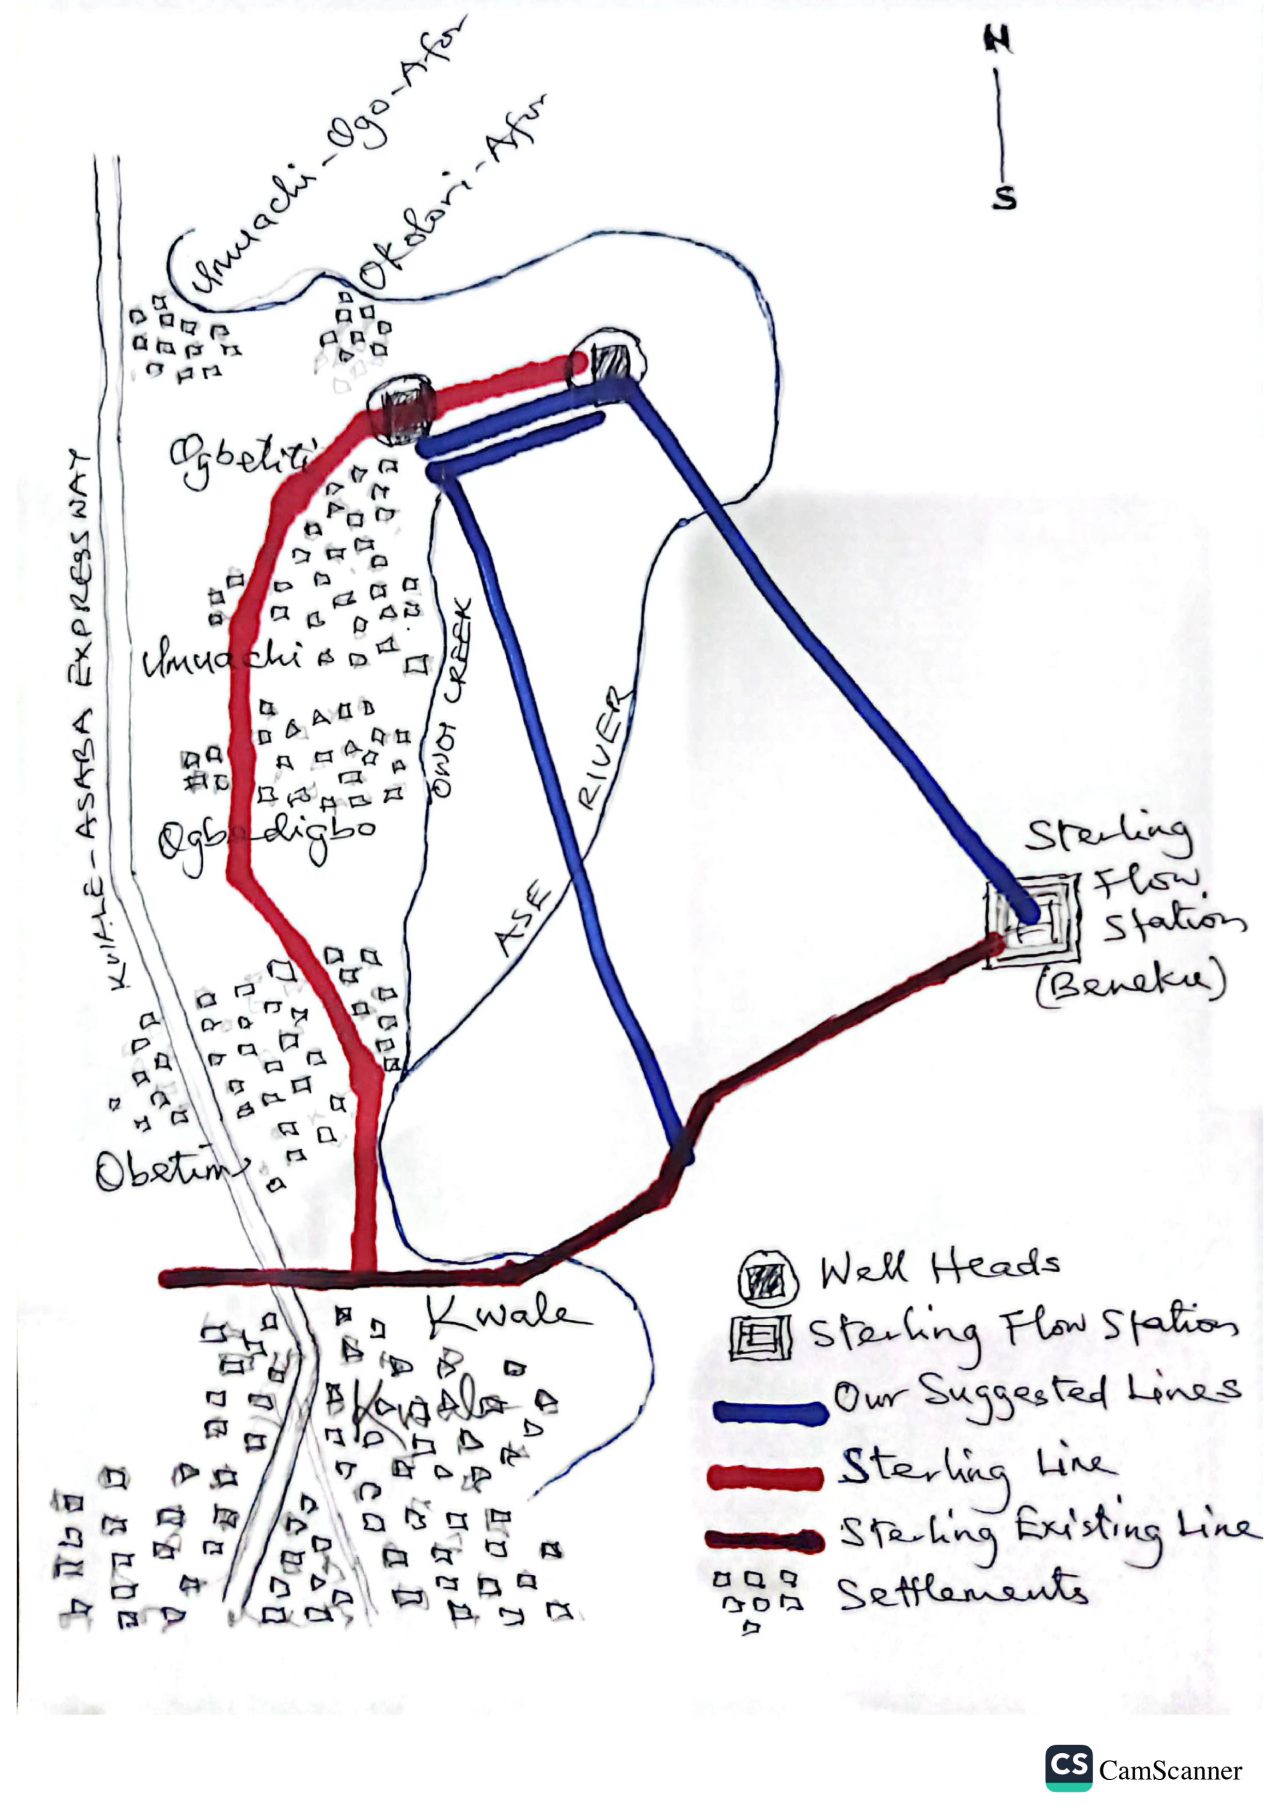 N
S
Umuachi-Ogo-Afor
Okolori-Afor
Ogbetiti
KWALE-ASABA EXPRESSWAY
Umuachi
OWOI CREEK
ASE RIVER
Ogbedigbo
Sterling
Flow
Station
(Beneku)
Obetim
Kwale
Kwale
Well Heads
Sterling Flow Station
Our Suggested Lines
Sterling Line
Sterling Existing Line
Settlements
CS CamScanner